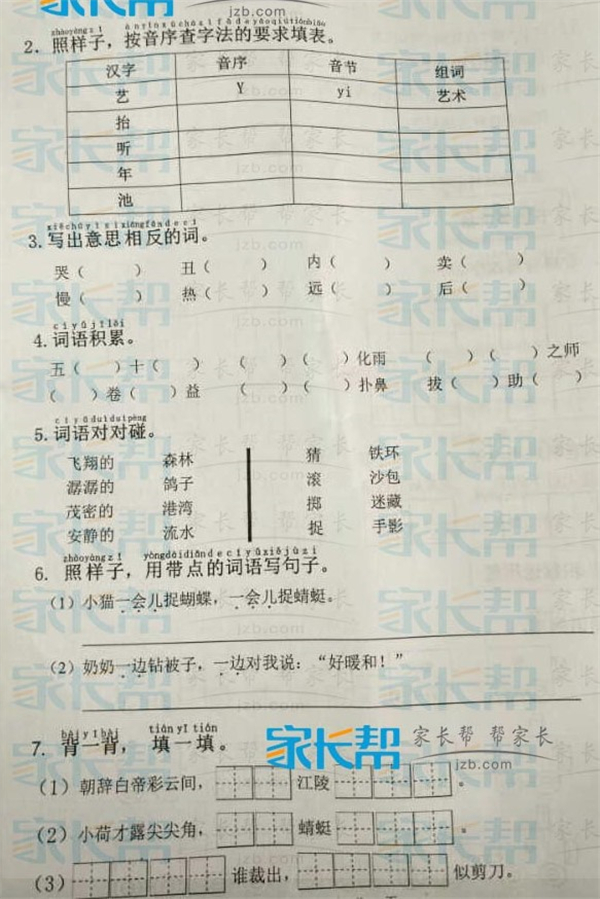 zhàoyàngzǐ ànyīnxùcházìfǎdeyāoqiútiánbiǎo
2. 照样子，按音序查字法的要求填表。
汉字 音序 音节 组词
艺 Y yi 艺术
抬
听
年
池
xiěchūyìsixiāngfǎndecí
3.写出意思相反的词。
哭（ ） 丑（ ） 内（ ） 卖（ ）
慢（ ） 热（ ） 远（ ） 后（ ）
cíyǔjīlěi
4.词语积累。
五（ ）十（ ） （ ）（ ）化雨 （ ）（ ）之师
（ ）卷（ ）益 （ ）（ ）扑鼻 拔（ ）助（ ）
cíyǔduìduìpèng
5.词语对对碰。
飞翔的 森林 猜 铁环
潺潺的 鸽子 滚 沙包
茂密的 港湾 掷 迷藏
安静的 流水 捉 手影
zhàoyàngzǐ yòngdàidiǎndecíyǔxiějùzi
6. 照样子，用带点的词语写句子。
（1）小猫一会儿捉蝴蝶，一会儿捉蜻蜓。
（2）奶奶一边钻被子，一边对我说：“好暖和！”
bèiyībèi tiányītián
7. 背一背，填一填。
家长帮 家长帮 帮家长
jzb.com
（1）朝辞白帝彩云间， 江陵 。
（2）小荷才露尖尖角， 蜻蜓 。
（3） 谁裁出， 似剪刀。